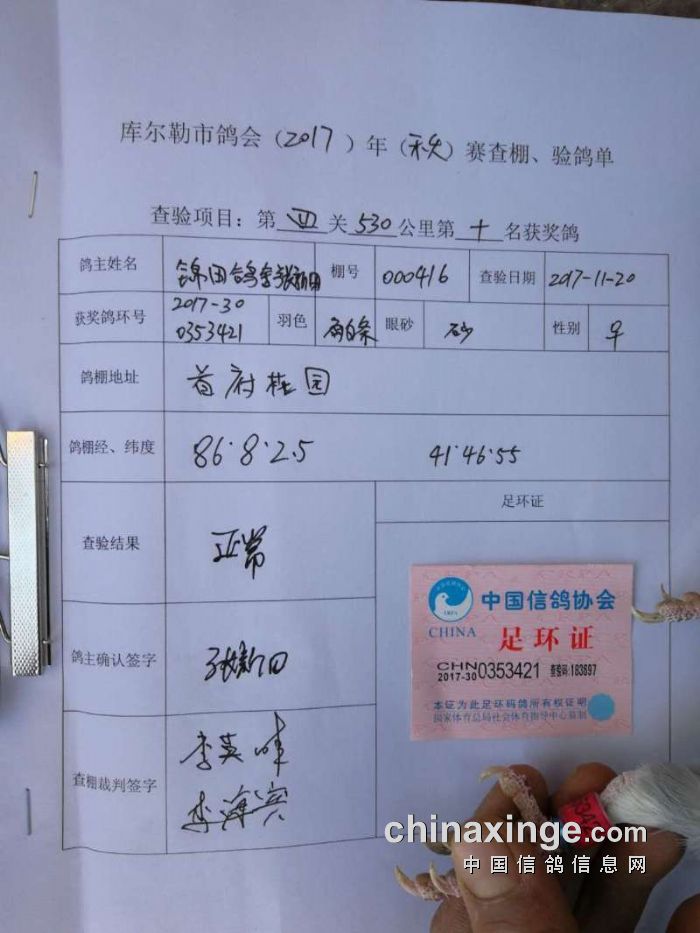 库尔勒市鸽会（2017）年（秋）赛查棚、验鸽单
查验项目：第 四 关 530 公里第 十 名获奖鸽
鸽主姓名 锦田鸽舍 张新田 棚号 000416 查验日期 2017-11-20
获奖鸽环号 2017-30 0353421 羽色 雨白条 眼砂 砂 性别 早
鸽棚地址 首府桂园
鸽棚经、纬度 86·8·2.5 41·46·55
查验结果 正常
足环证
鸽主确认签字 张新田
查棚裁判签字 李英 李海宾
中国信鸽协会
CHINA
足环证
CHN 2017-30 0353421 查验码:183697
本证为此足环码鸽所有权证明
国家体育总局社会体育指导中心监制
chinaxinge.com
中国信鸽信息网